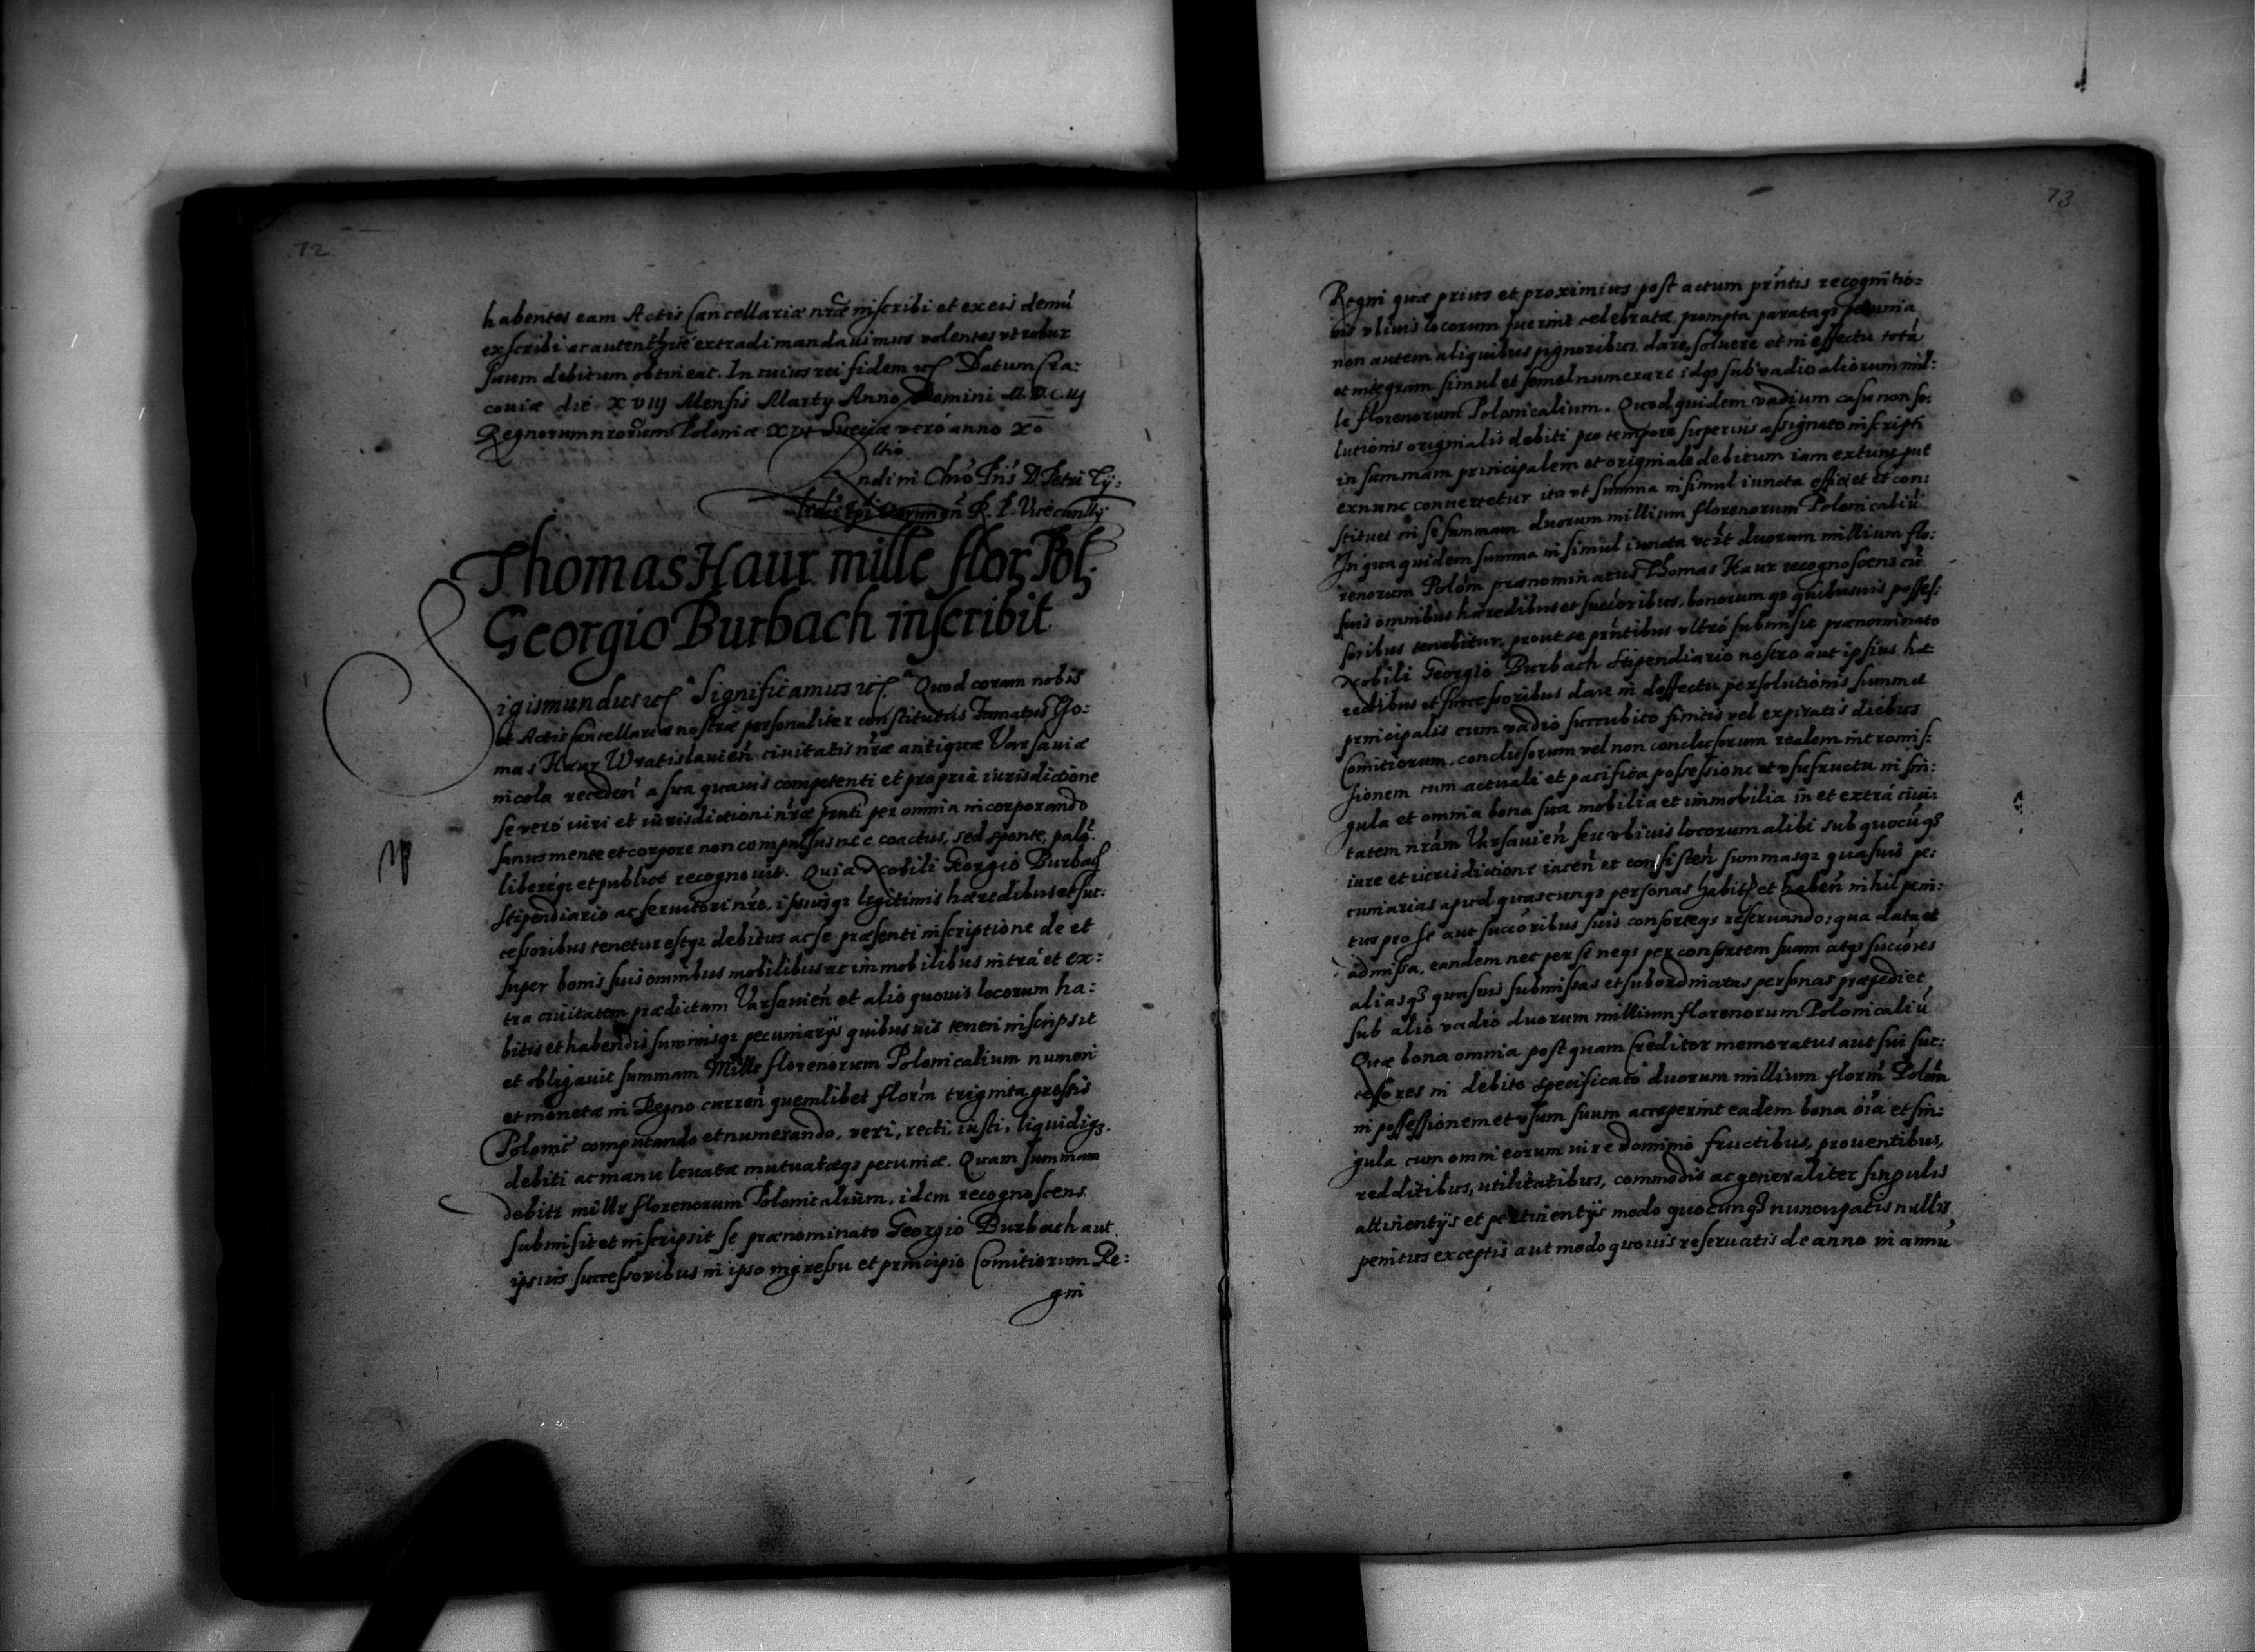 72
habentes eam Actis Cancellariæ nr̃æ inscribi et ex eis demũ
exscribi ac autenthicè extradi mandauimus volentes vt robur
suum debitum obtineat. In cuius rei fidem etc̃ Datum Cra:
couiæ die XVIIJ Mensis Marty Anno Domini M.D.C.IIJ
Regnorum nrorum Poloniæ XVI Sueciæ vero anno Xo
ltio
Rndi in Chrõ Pris D. Petri Ty:
R. P. Vicecanllrij
Thomas Haur mille flor Pol.
Georgio Burbach inscribit
Sigismundus etc̃ Significamus etc̃. Quod coram nobis
et Actis Cancellariæ nostræ personaliter constitutus Famatus Tho:
mas Haur Wratislauien̄ ciuitatis nr̃æ antiquæ Varsauiæ
incola receden̄ a sua quauis competenti et propria iurisdictione
se vero iuri et iurisdictioni nr̃æ prñti per omnia incorporando
sanus mente et corpore non compulsus nec coactus, sed sponte, palã
libereq; et publicè recognouit. Quia Nobili Georgio Burbach
Stipendiario ac seruitori nr̃o, ipsiusq; legitimis hæredibus et suc:
cessoribus tenetur estq; debitus ac se præsenti inscriptione de et
super bonis suis omnibus mobilibus ac immobilibus intra et ex:
tra ciuitatem prædictam Varsauien̄ et alio quouis locorum ha:
bitis et habendis summisq; pecuniarijs quibusuis teneri inscripsit
et obligauit summam Mille florenorum Polonicalium numeri
et monetæ in Regno curren̄ quemlibet flor̃m triginta grossis
Polonic̃ computando et numerando, veri, recti, iusti, liquidiq;
debiti ac manu leuatæ mutuatæq; pecuniæ. Quam summam
debiti mille florenorum Polonicalium, idem recognoscens
submisit et inscripsit se prænominato Georgio Burbach aut
ipsius successoribus in ipso ingressu et principio Comitiorum Re:
gni
73
Regni quæ prius et proximius post actum prñtis recognitio:
nis vbiuis locorum fuerint celebratæ, prompta parataq; pecunia
non autem aliquibus pignoribus, dare, soluere et in effectu totã
et integram simul et semel numerare idq; sub vadio aliorum mil:
le florenorum Polonicalium. Quod quidem vadium casu non so:
lutionis originalis debiti pro tempore superius assignato inscripti
in summam principalem et originale debitum iam ex tunc put
ex nunc conuertetur ita vt summa in simul iuncta efficiet et con:
stituet in se summam duorum millium florenorum Polonicaliũ
In qua quidem summa in simul iuncta vc̃zt duorum millium flo:
renorum Polõn prænominatus Thomas Haur recognoscens cũ
suis omnibus hæredibus et succ̃oribus, bonorumq; quibusuis posses:
soribus tenebitur, prout se prñtibus vltrò submisit prænominato
Nobili Georgio Burbach Stipendiario nostro aut ipsius hæ
redibus et successoribus dare in deffectu persolutionis summæ
principalis cum vadio succubito finitis vel expiratis diebus
Comitiorum, conclusorum vel non conclusorum realem intromis:
sionem cum actuali et pacifica possessione et vsufructu in sin:
gula et omnia bona sua mobilia et immobilia in et extra ciui:
tatem nr̃am Varsauien̄ seu vbiuis locorum alibi sub quocũq;
iure et iurisdictione iacen̄ et consisten̄ summasq; quasuis pe:
cuniarias apud quascunq; personas habit̃ et haben̄ nihil peni:
tus pro se aut succ̃oribus suis consorteq; reseruando; qua data et
admissa, eandem nec per se neq; per consortem suam atq; succ̃ores
aliasq; quasuis submissas et subordinatas personas præpediet
sub alio vadio duorum millium florenorum Polonicaliũ
Quæ bona omnia postquam Creditor memoratus aut sui suc:
cessores in debito specificato duorum millium flor̃m Polõn
in possessionem et vsum suum acceperint eadem bona õia et sin:
gula cum omni eorum iure dominio fructibus, prouentibus,
redditibus, utilitatibus, commodis ac generaliter singulis
attinentijs et pertinentijs modo quocunq; nuncupatis nullis
penitus exceptis aut modo quouis reseruatis de anno in annũ